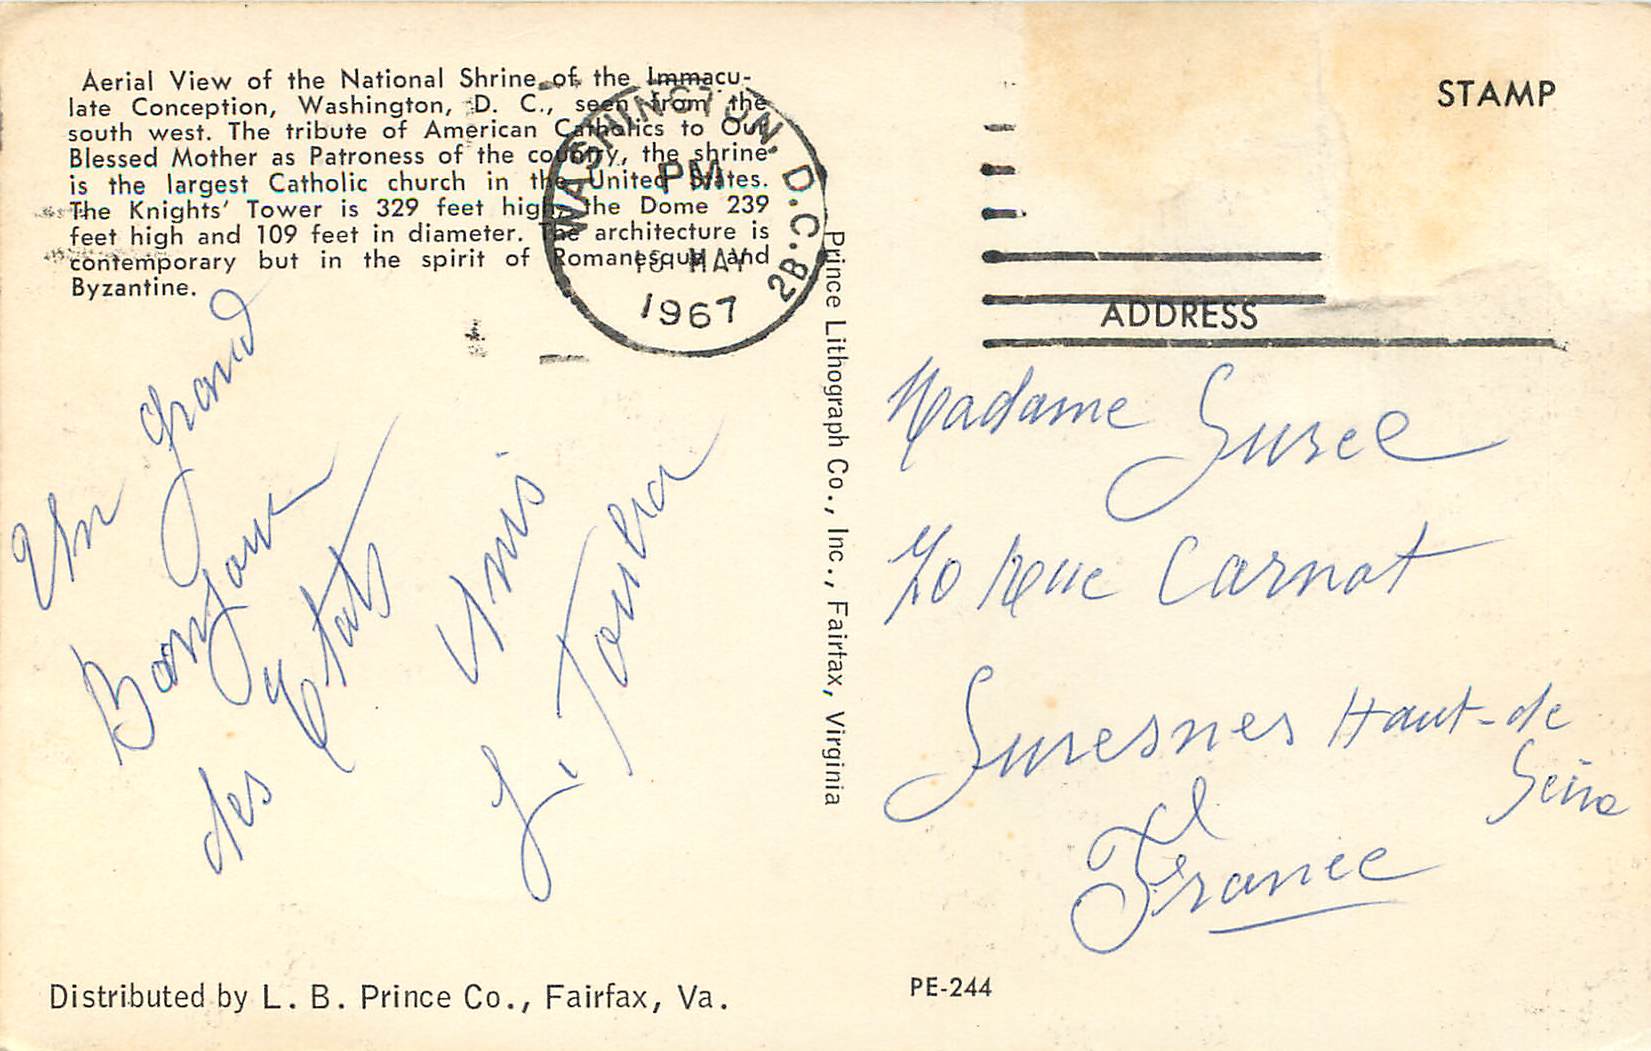 Aerial View of the National Shrine of the Immacu-
late Conception, Washington, D. C., seen from the
south west. The tribute of American Catholics to Our
Blessed Mother as Patroness of the country, the shrine
is the largest Catholic church in the United States.
The Knights' Tower is 329 feet high, the Dome 239
feet high and 109 feet in diameter. The architecture is
contemporary but in the spirit of Romanesque and
Byzantine.
WASHINGTON, D.C. 2B
PM
MAY
1967
Un grand
Bonjour
des Etats
Unis
Distributed by L. B. Prince Co., Fairfax, Va.
Prince Lithograph Co., Inc., Fairfax, Virginia
STAMP
ADDRESS
Madame
Rue Carnot
Suresnes Haut-de
Seine
France
PE-244